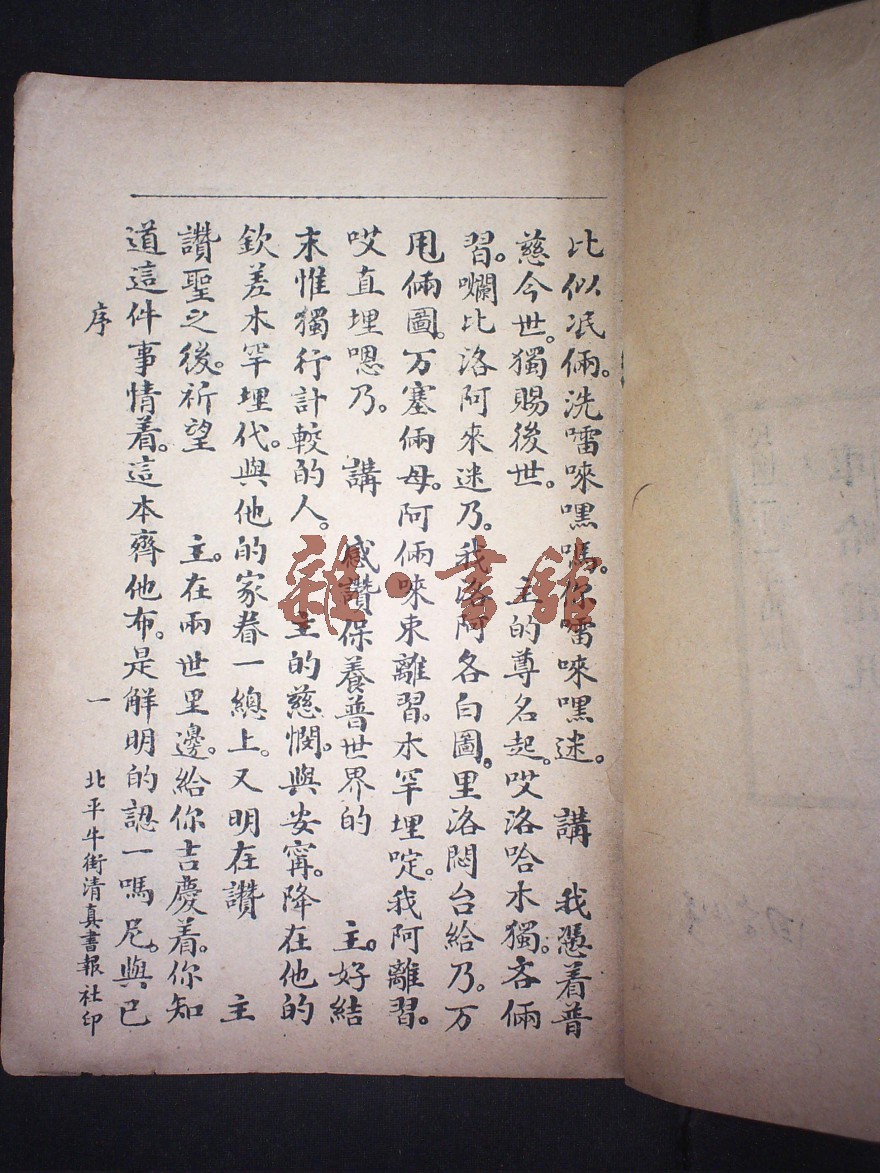 比似泯倆。洗嚅唻嘿嗎。你嚅唻嘿迷。 講 我憑着普
慈今世。獨賜後世。 主的尊名起。哎洛哈木獨。客倆
習。囒比洛阿來迷乃。我洛阿各白圖。里洛悶台給乃。万
甩倆圖。万塞倆母。阿倆唻束離習。木罕埋啶。我阿離習。
哎直埋嗯乃。 講 感讚保養普世界的 主。好結
末惟獨行計較的人。 主的慈憫。與安甯。降在他的
欽差木罕埋代。與他的家眷一總上。又明在讚 主
讚聖之後。祈望 主。在兩世里邊。給你吉慶着。你知
道這件事情着。這本齊他布。是解明的認一嗎尼。與已
序 一 北平牛街清真書報社印
雜·書館